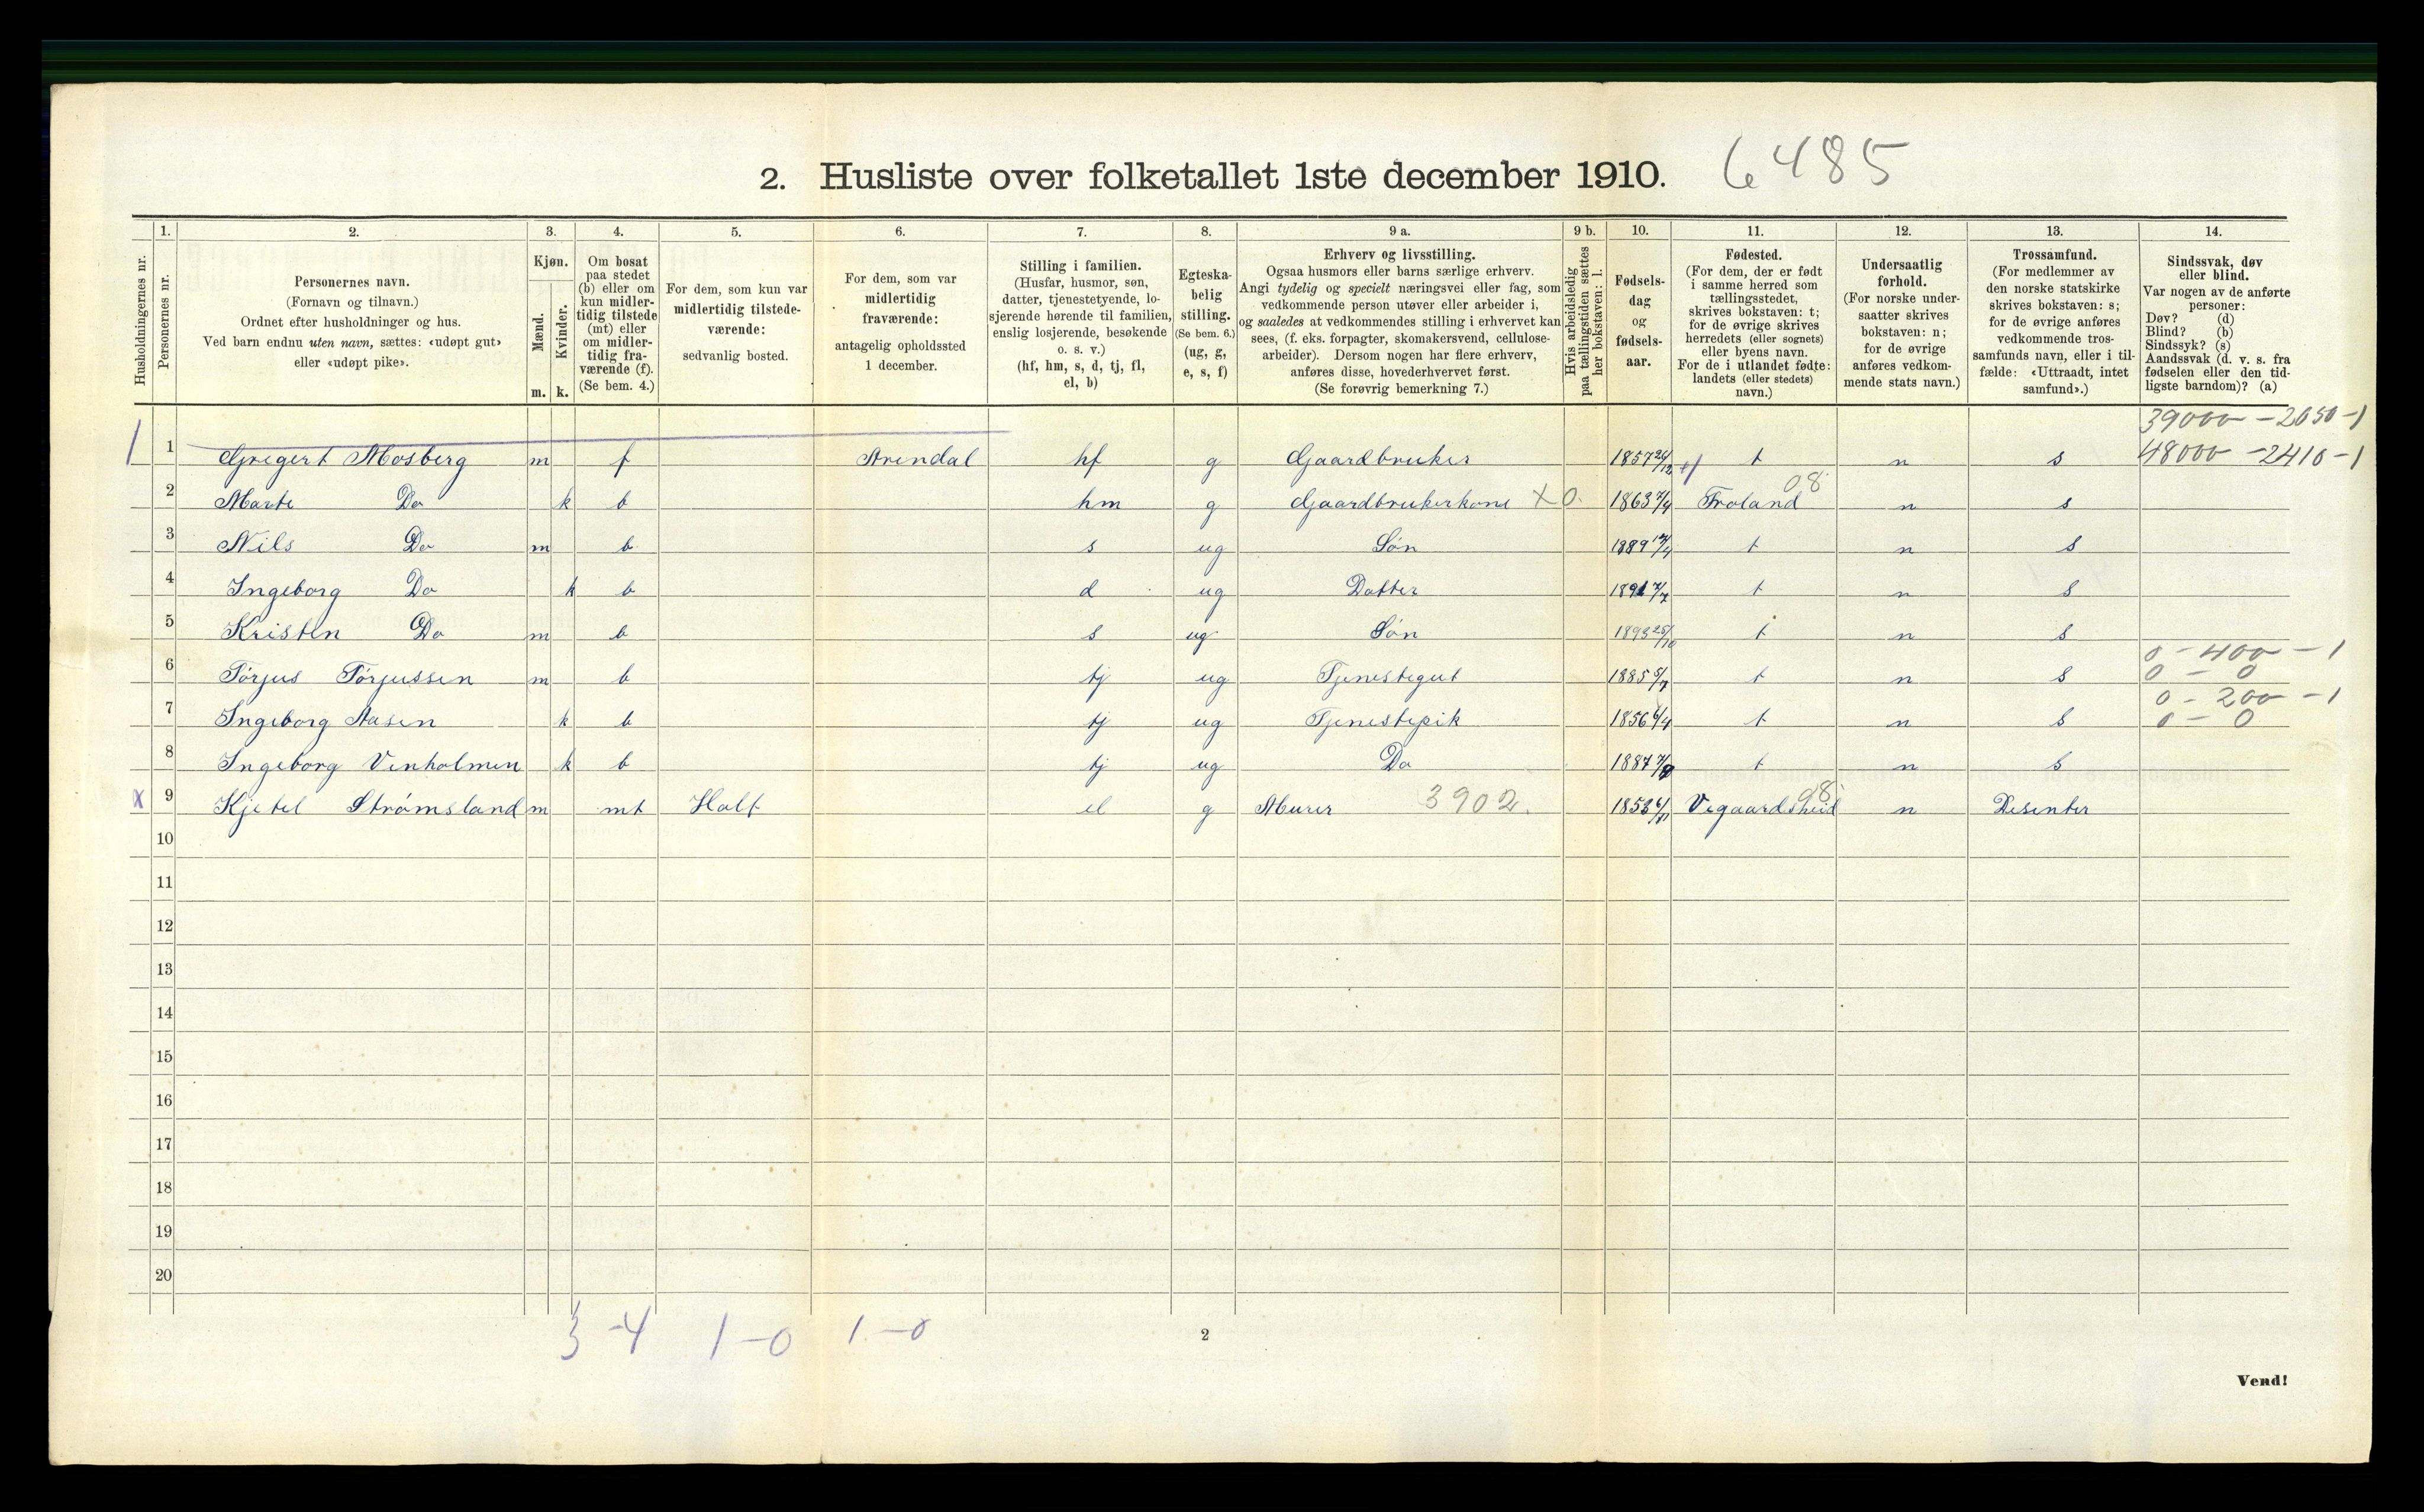 2. Husliste over folketallet 1ste december 1910. 6485
1. 2. 3. 4. 5. 6. 7. 8. 9 a. 9 b. 10. 11. 12. 13. 14.
Husholdningernes nr.
Personernes nr.
Personernes navn.
(Fornavn og tilnavn.)
Ordnet efter husholdninger og hus.
Ved barn endnu uten navn, sættes: «udøpt gut»
eller «udøpt pike».
Kjøn.
Mænd.
Kvinder.
m. k.
Om bosat
paa stedet
(b) eller om
kun midler-
tidig tilstede
(mt) eller
om midler-
tidig fra-
værende (f).
(Se bem. 4.)
For dem, som kun var
midlertidig tilstede-
værende:
sedvanlig bosted.
For dem, som var
midlertidig
fraværende:
antagelig opholdssted
1 december.
Stilling i familien.
(Husfar, husmor, søn,
datter, tjenestetyende, lo-
sjerende hørende til familien,
enslig losjerende, besøkende
o. s. v.)
(hf, hm, s, d, tj, fl,
el, b)
Egteska-
belig
stilling.
(Se bem. 6.)
(ug, g,
e, s, f)
Erhverv og livsstilling.
Ogsaa husmors eller barns særlige erhverv.
Angi tydelig og specielt næringsvei eller fag, som
vedkommende person utøver eller arbeider i,
og saaledes at vedkommendes stilling i erhvervet kan
sees, (f. eks. forpagter, skomakersvend, cellulose-
arbeider). Dersom nogen har flere erhverv,
anføres disse, hovederhvervet først.
(Se forøvrig bemerkning 7.)
Hvis arbeidsledig
paa tællingstiden sættes
her bokstaven: l.
Fødsels-
dag
og
fødsels-
aar.
Fødested.
(For dem, der er født
i samme herred som
tællingsstedet,
skrives bokstaven: t;
for de øvrige skrives
herredets (eller sognets)
eller byens navn.
For de i utlandet fødte:
landets (eller stedets)
navn.)
Undersaatlig
forhold.
(For norske under-
saatter skrives
bokstaven: n;
for de øvrige
anføres vedkom-
mende stats navn.)
Trossamfund.
(For medlemmer av
den norske statskirke
skrives bokstaven: s;
for de øvrige anføres
vedkommende tros-
samfunds navn, eller i til-
fælde: «Uttraadt, intet
samfund».)
Sindssvak, døv
eller blind.
Var nogen av de anførte
personer:
Døv? (d)
Blind? (b)
Sindssyk? (s)
Aandssvak (d. v. s. fra
fødselen eller den tid-
ligste barndom)? (a)
39000 - 2650 - 1
1 1 Gregert Mosberg m f Arendal hf g Gaardbruker 1857 26/12 t n s 48000 - 2410 - 1
2 Marte Do k b hm g Gaardbrukerkone x 0. 1863 7/4 Froland 08 n s
3 Nils Do m b s ug Søn 1889 17/4 t n s
4 Ingeborg Do k b d ug Datter 1891 7/7 t n s
5 Kristen Do m b s ug Søn 1893 25/10 t n s
0 - 400 - 1
6 Tórjus Tórjussen m b tj ug Tjenestegut 1885 5/7 t n s 0 - 0
0 - 200 - 1
7 Ingeborg Aasen k b tj ug Tjenestepik 1856 6/4 t n s 0 - 0
8 Ingeborg Vinholmen k b tj ug Do 1887 t n s
x 9 Kjetel Strómsland m mt Holt el g Murer 3902. 1853 Vegaardsheid 08 n Desenter
10
11
12
13
14
15
16
17
18
19
20
3 - 4 1 - 0 1. - 0
2
Vend!